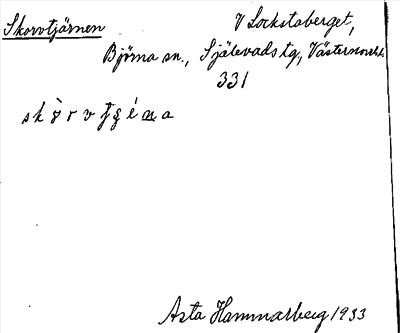 Skorvtjärnen
V Lockstaberget,
Björna sn., Själevads tg, Västernorrl.
331
Asta Hammarberg 1933